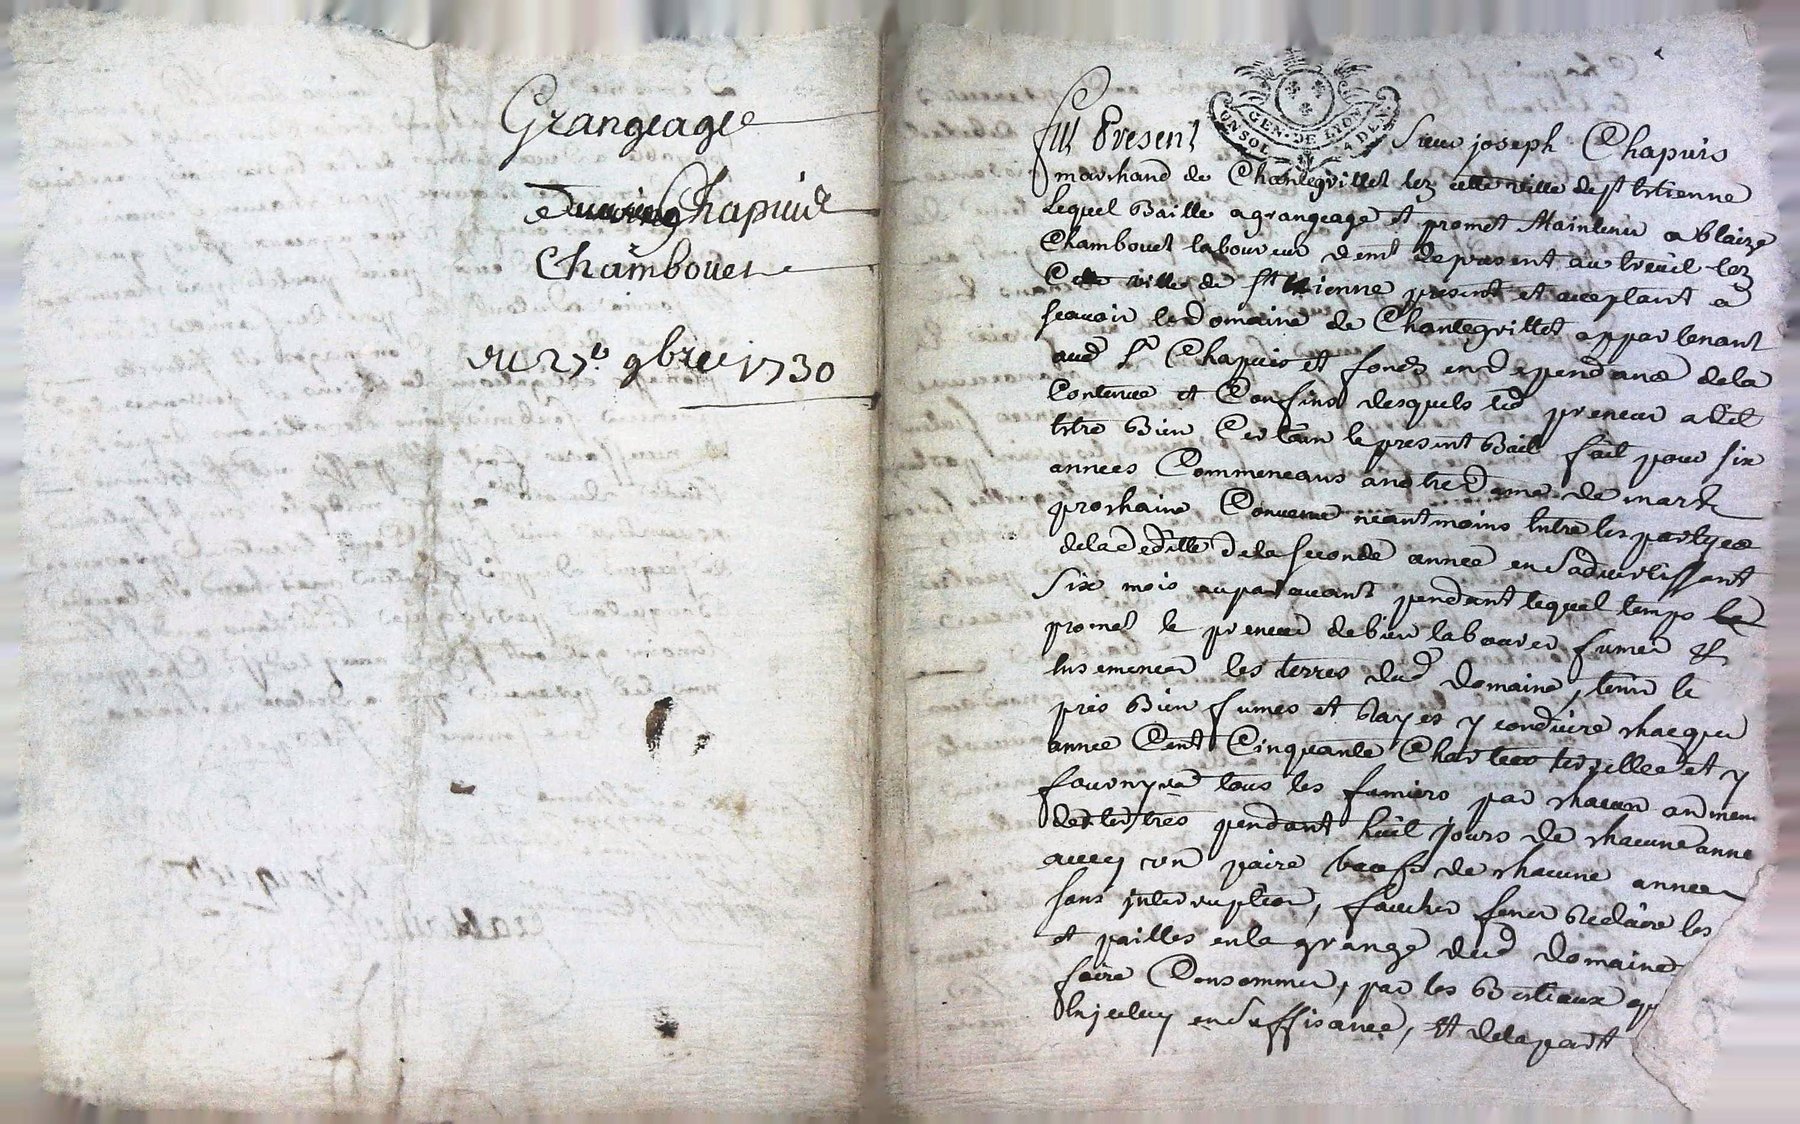 Grangeage
Chapuis
Chambouet
du 27.e 9bre 1730
GEN. DE LYON
UN SOL
Fut Present Sieur joseph Chapuis
marchand de Chantegrillet lez cette ville de st Etienne
Lequel Baille a grangeage et promet Maintenir a blaize
Chambouet laboureur demt de present au treüil lez
Cette ville de st Etienne present et acceptant a
scavoir le Domaine de Chantegrillet appartenant
aud Sr Chapuis et fonds en dependans de la
Contenue et Confins desquels led preneur a dit
Estre Bien Certain le present Bail fait pour six
années Commencans a notre Dame de mars
prochaine, Convenu neantmoins Entre les partyes
de la de la seconde année en s'advertissant
Six mois auparavant pendant lequel temps
promet le preneur de bien labourer fumer &
Ensemencer les terres dud Domaine, tenir le
prés Bien fumés et Rayés y conduire chacque
année Cent Cinquante et y
fournyra tous les fumiers par chacun an
pendant huit jours de chacune anné
avecq un paire bœufs de chacune année
sans jnterruption, faucher fener Reclaire les
et pailles en la grange dud Domaine
faire Consommer, par les Bestiaux qu
En suffisance, Et de la part